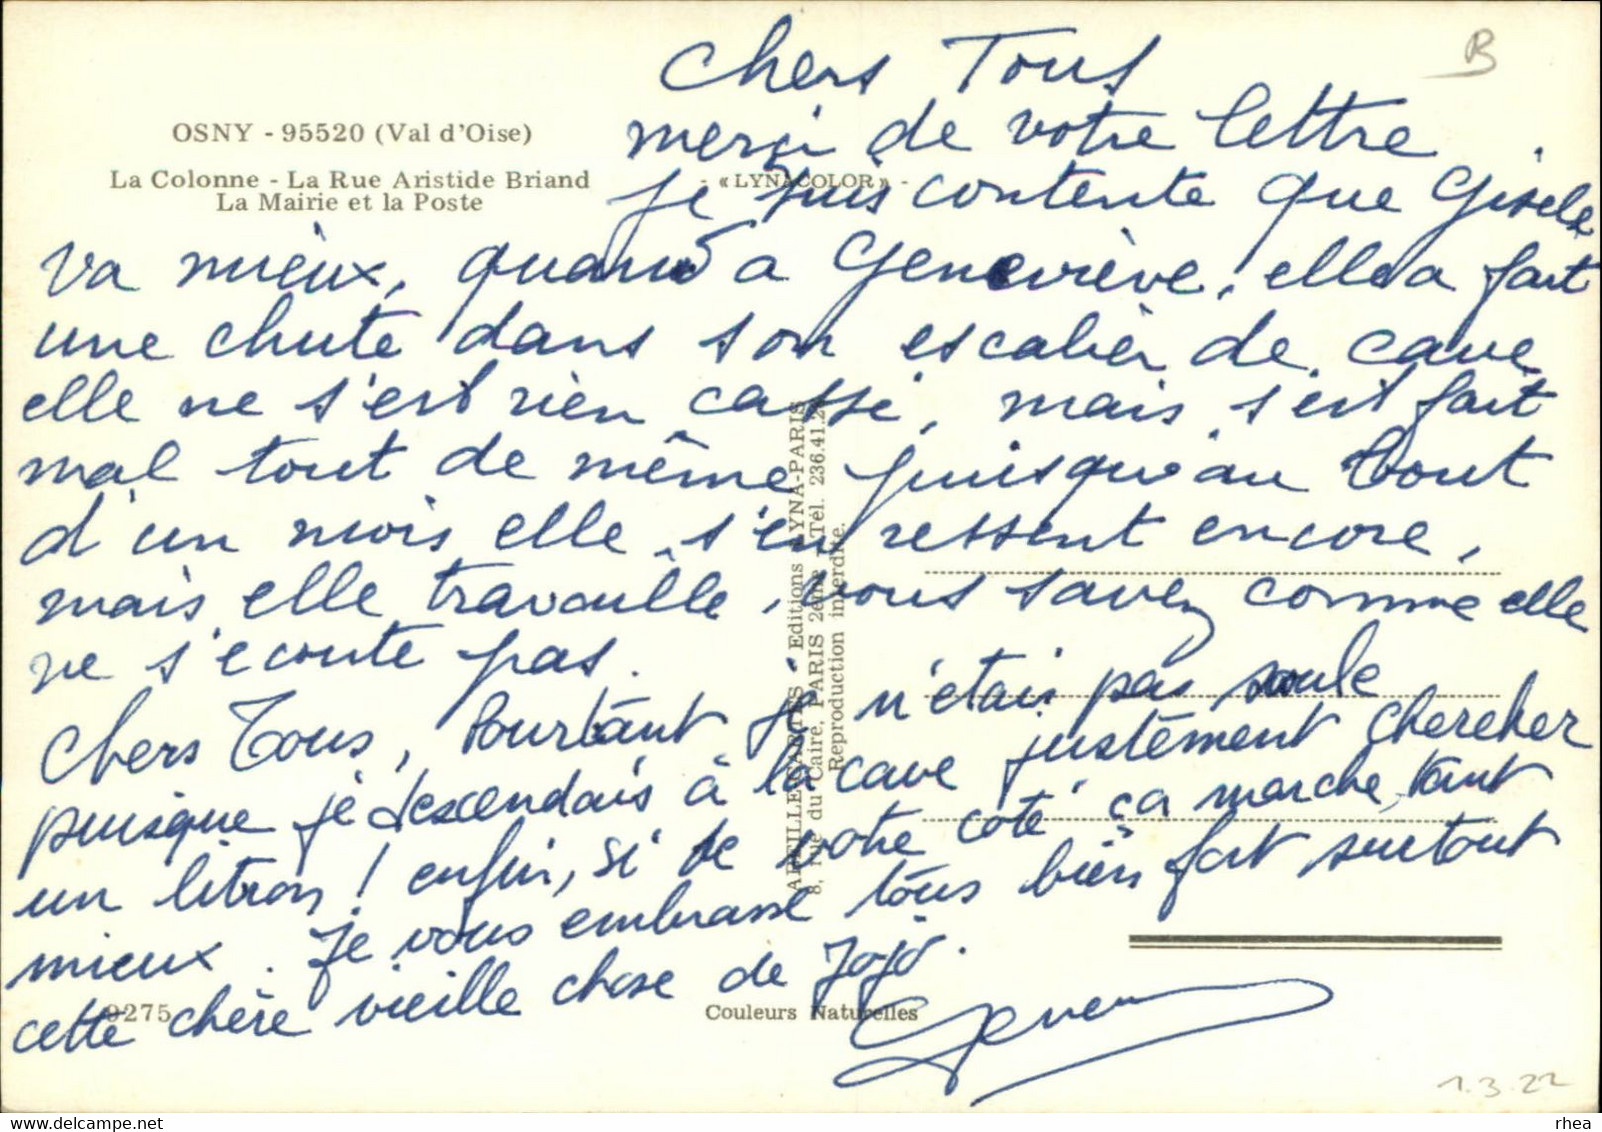 Chers Tous
B
merçi de votre lettre.
OSNY - 95520 (Val d'Oise)
La Colonne - La Rue Aristide Briand
La Mairie et la Poste
- « LYNACOLOR » -
Je suis contente que Gisèle
va mieux, quand a Geneviève, elle a fait
une chute dans son escalier de cave
elle ne s'est rien cassé, mais s'est fait
mal tout de même puisqu'au bout
d'un mois elle s'en ressent encore,
mais elle travaille, vous savez comme elle
ne s'écoute pas.
Chers Tous, Pourtant je n'étais pas soule
puisque je descendais à la cave justement chercher
un litron ! enfin, si de votre coté ça marche, tant
mieux. Je vous embrasse tous bien fort surtout
cette chère vieille chose de Jojo.
Genev
ABEILLE-CARTES - Editions LYNA-PARIS
8, rue du Caire, PARIS 2ème - Tél. 236.41.2
Reproduction interdite.
9275
Couleurs Naturelles
1.3.22
rhea